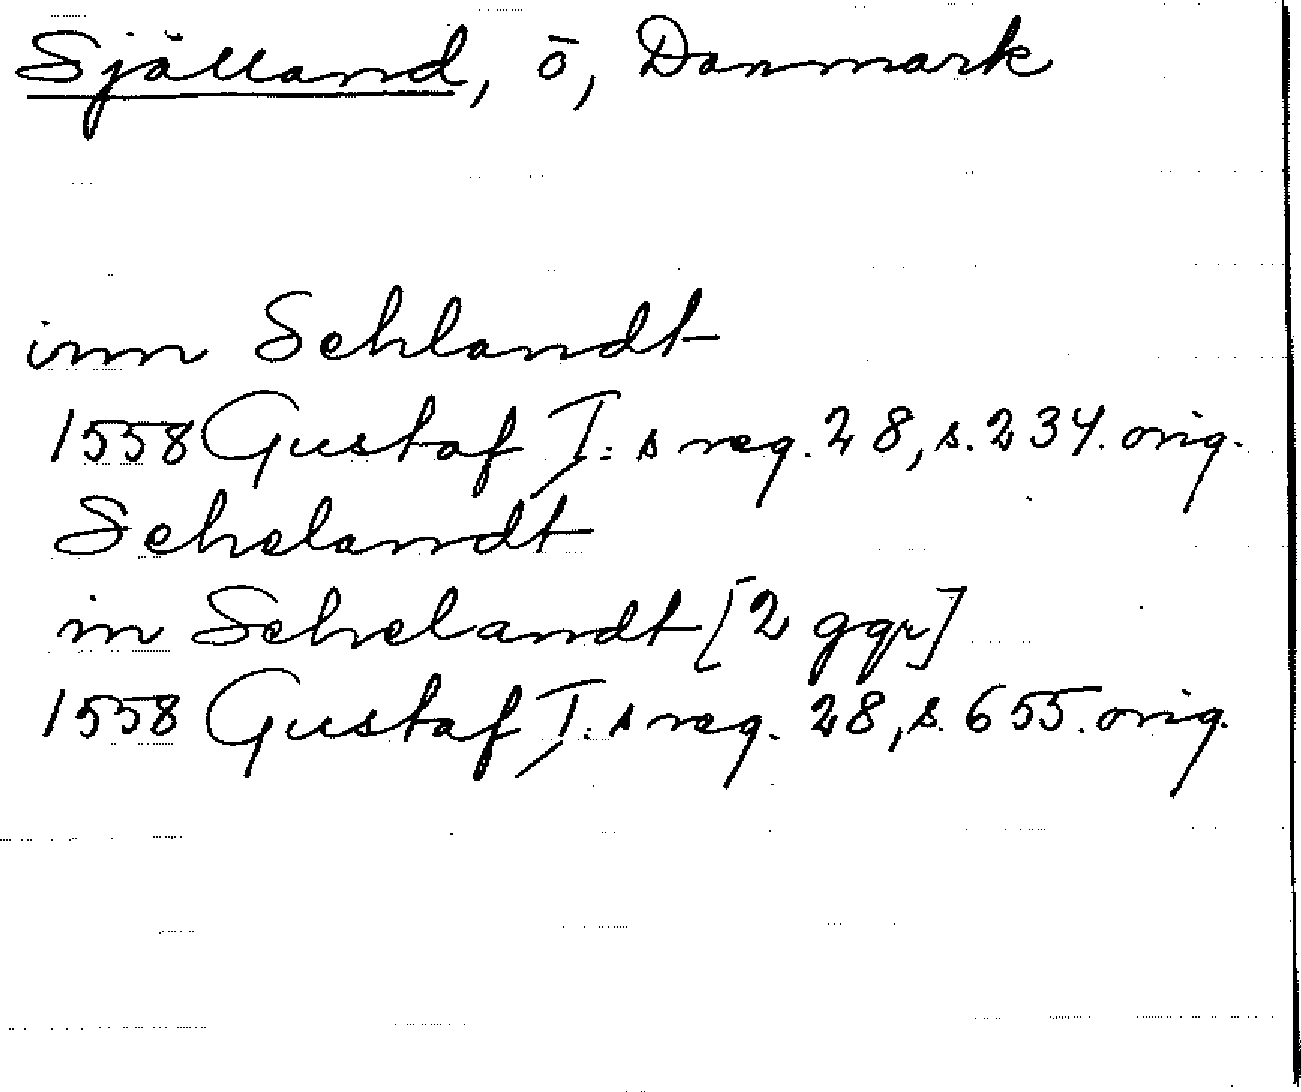 Själland, ö, Danmark
inn Sehlandt
1558 Gustaf I:s reg. 28, s. 234. orig.
Sehelandt
in Sehelandt [2 ggr]
1558 Gustaf I:s reg. 28, s. 655. orig.